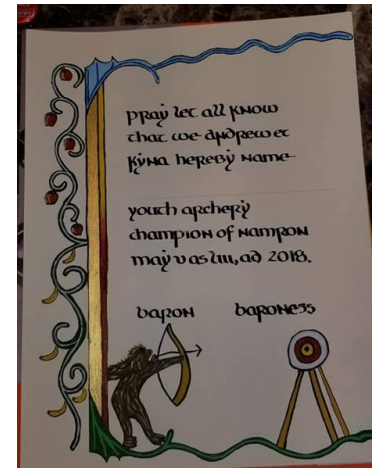 pray let all know
that we andrew et
kyna hereby name
youth archery
champion of namron
may v as liii, ad 2018.
baron baroness